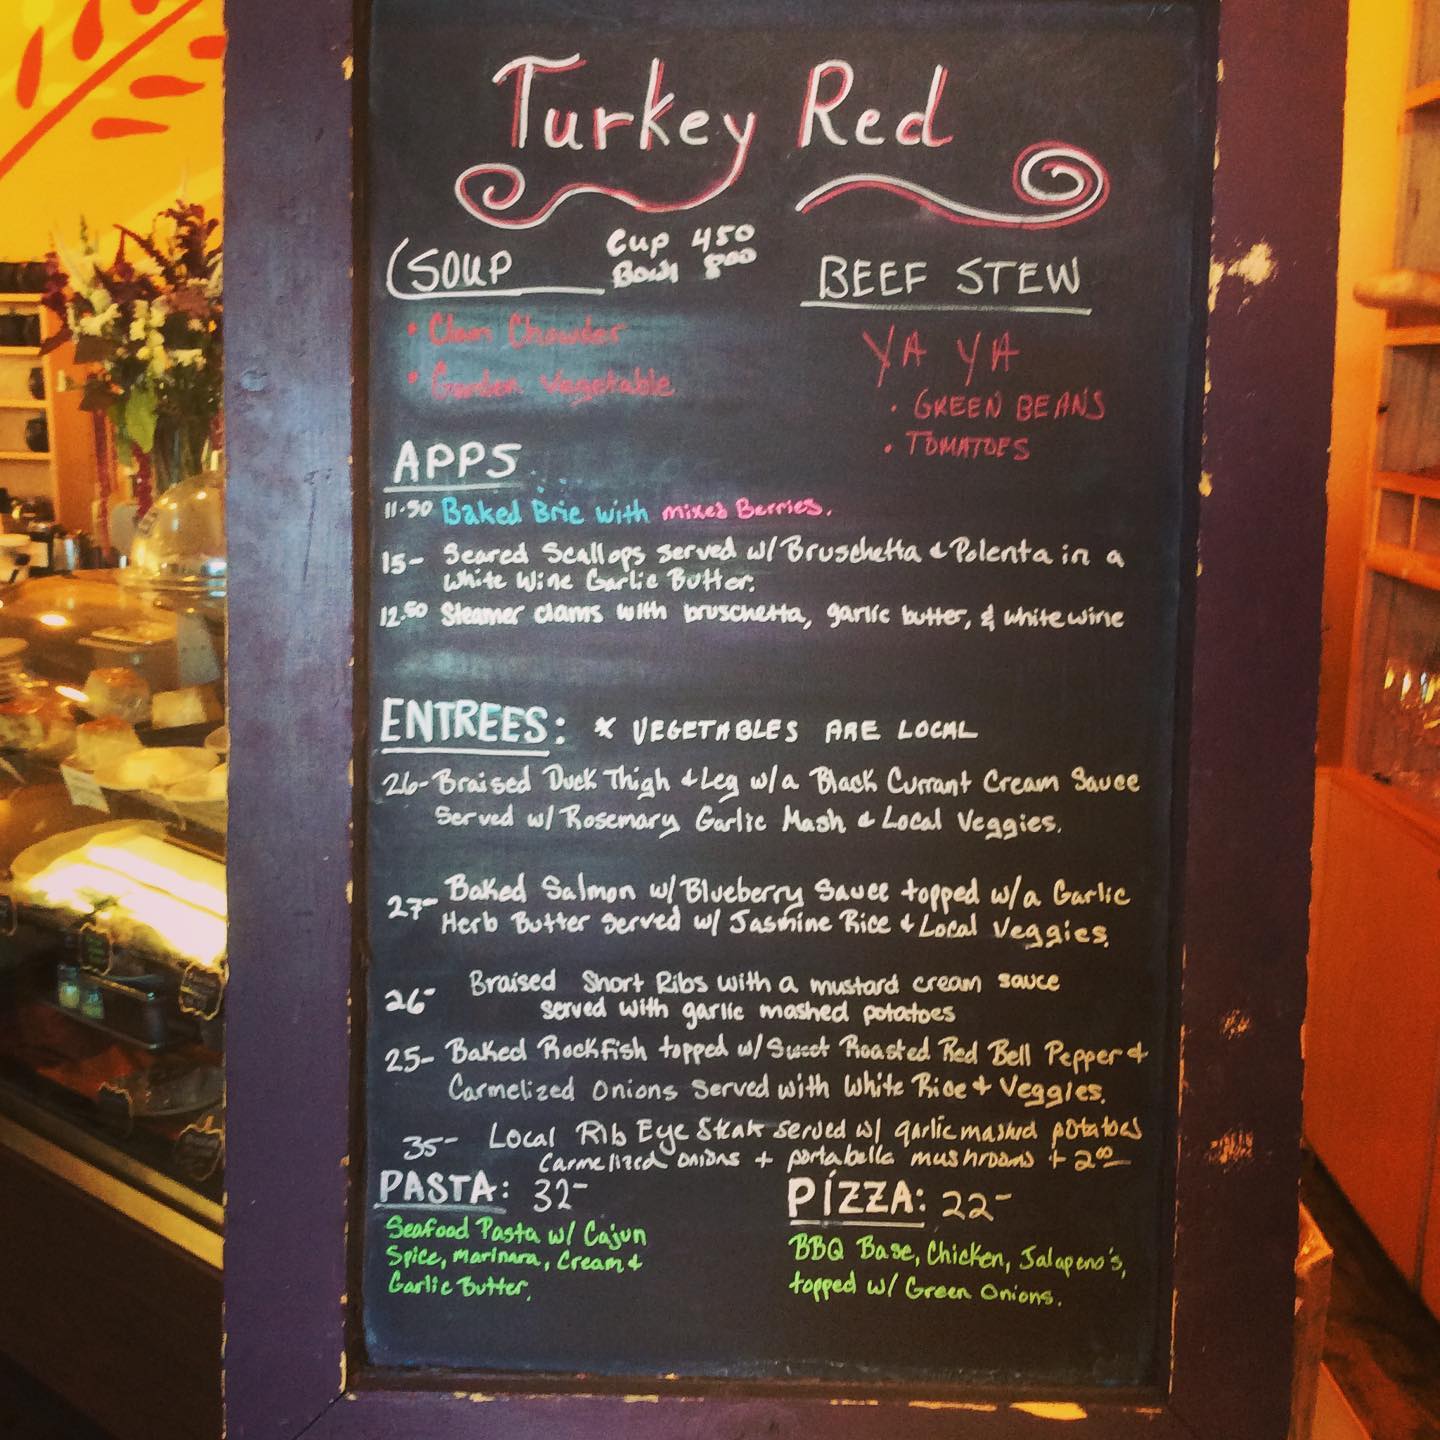 Turkey Red
SOUP
Cup 4 50
Bowl 8 00
• Clam Chowder
• Garden Vegetable
BEEF STEW
YA YA
• GREEN BEANS
• TOMATOES
APPS
11.50 Baked Brie with mixed Berries.
15- Seared Scallops served w/ Bruschetta & Polenta in a
White Wine Garlic Butter.
12.50 Steamer clams with bruschetta, garlic butter, & white wine
ENTREES: * VEGETABLES ARE LOCAL
26- Braised Duck Thigh & Leg w/a Black Currant Cream Sauce
Served w/ Rosemary Garlic Mash & Local Veggies.
27- Baked Salmon w/ Blueberry Sauce topped w/a Garlic
Herb Butter served w/ Jasmine Rice & Local Veggies.
26- Braised Short Ribs with a mustard cream sauce
served with garlic mashed potatoes
25- Baked Rockfish topped w/ Sweet Roasted Red Bell Pepper &
Carmelized Onions served with White Rice & Veggies.
35- Local Rib Eye Steak served w/ garlic mashed potatoes
Carmelized onions + portabella mushrooms + 2 00
PASTA: 32-
Seafood Pasta w/ Cajun
Spice, marinara, Cream &
Garlic Butter.
PIZZA: 22-
BBQ Base, Chicken, Jalapeno's,
topped w/ Green Onions.